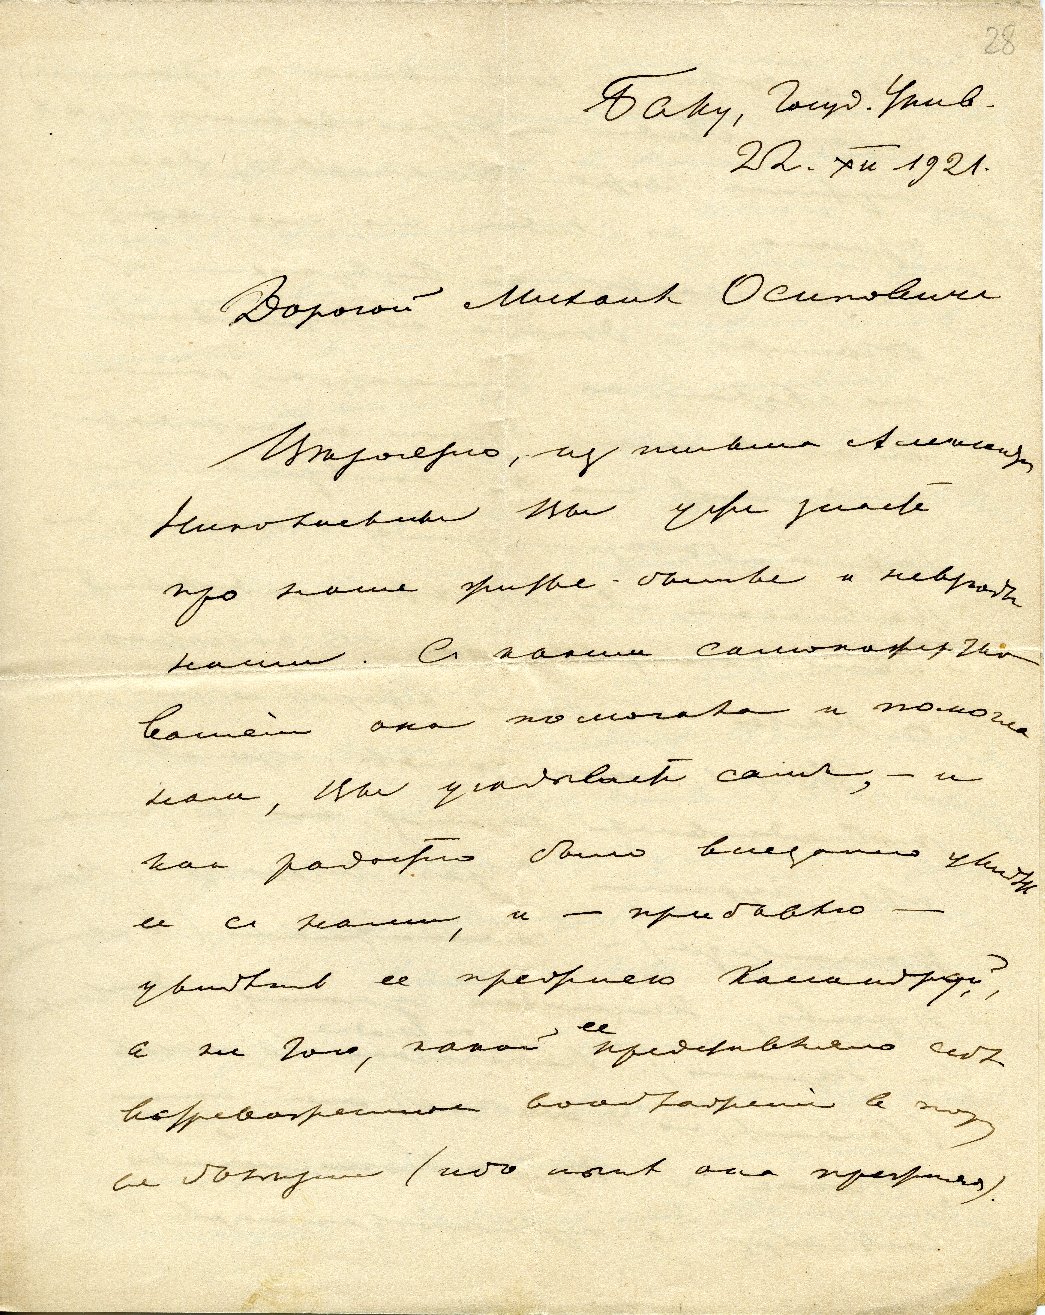 28
Баку, Госуд. Унив.
22. XII 1921.
Дорогой Михаил Осипович
Вероятно, из письма Александры
Николаевны Вы уже знаете
про наше житье-бытье и невзгоды
наши. С каким самопожертво
ванием она помогала и помогла
нам, Вы угадываете сами, – и
как радостно было внезапно увидеть
ее с нами, и – прибавлю –
увидеть ее прежнею
а не тою, какой ее представляло себе
встревоженное воображение в пору
ее болезни (ибо ныне она прежняя).